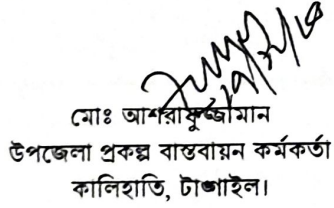 মোঃ আশরাফুজ্জামান
উপজেলা প্রকল্প বাস্তবায়ন কর্মকর্তা
কালিহাতি, টাঙ্গাইল।